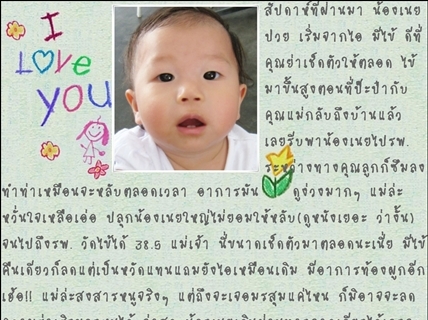 I
LOVE
YOU
สัปดาห์ที่ผ่านมา น้องเนย
ป่วย เริ่มจากไอ มีไข้ ดีที่
คุณย่าเช็ดตัวให้ตลอด ไข้
มาขึ้นสูงตอนที่ป๊ะป๋ากับ
คุณแม่กลับถึงบ้านแล้ว
เลยรีบพาน้องเนยไปรพ.
ระหว่างทางคุณลูกก็ซึมลง
ทำท่าเหมือนจะหลับตลอดเวลา อาการมัน ดูง่วงมากๆ แม่ล่ะ
หวั่นใจเหลือเอ่อ ปลุกน้องเนยใหญ่ไม่ยอมให้หลับ(ดูหนังเยอะ ว่างั้น)
จนไปถึงรพ. วัดไข้ได้ 38.5 แม่เจ้า นี่ขนาดเช็ดตัวมาตลอดนะเนี่ย มีไข้
คืนเดียวก็ลดแต่เป็นหวัดแทนแถมยังไอเหมือนเดิม มีอาการท้องผูกอีก
เฮ้อ!! แม่ล่ะสงสารหนูจริงๆ แต่ถึงจะเจอมรสุมแค่ไหน ก็มิอาจจะลด